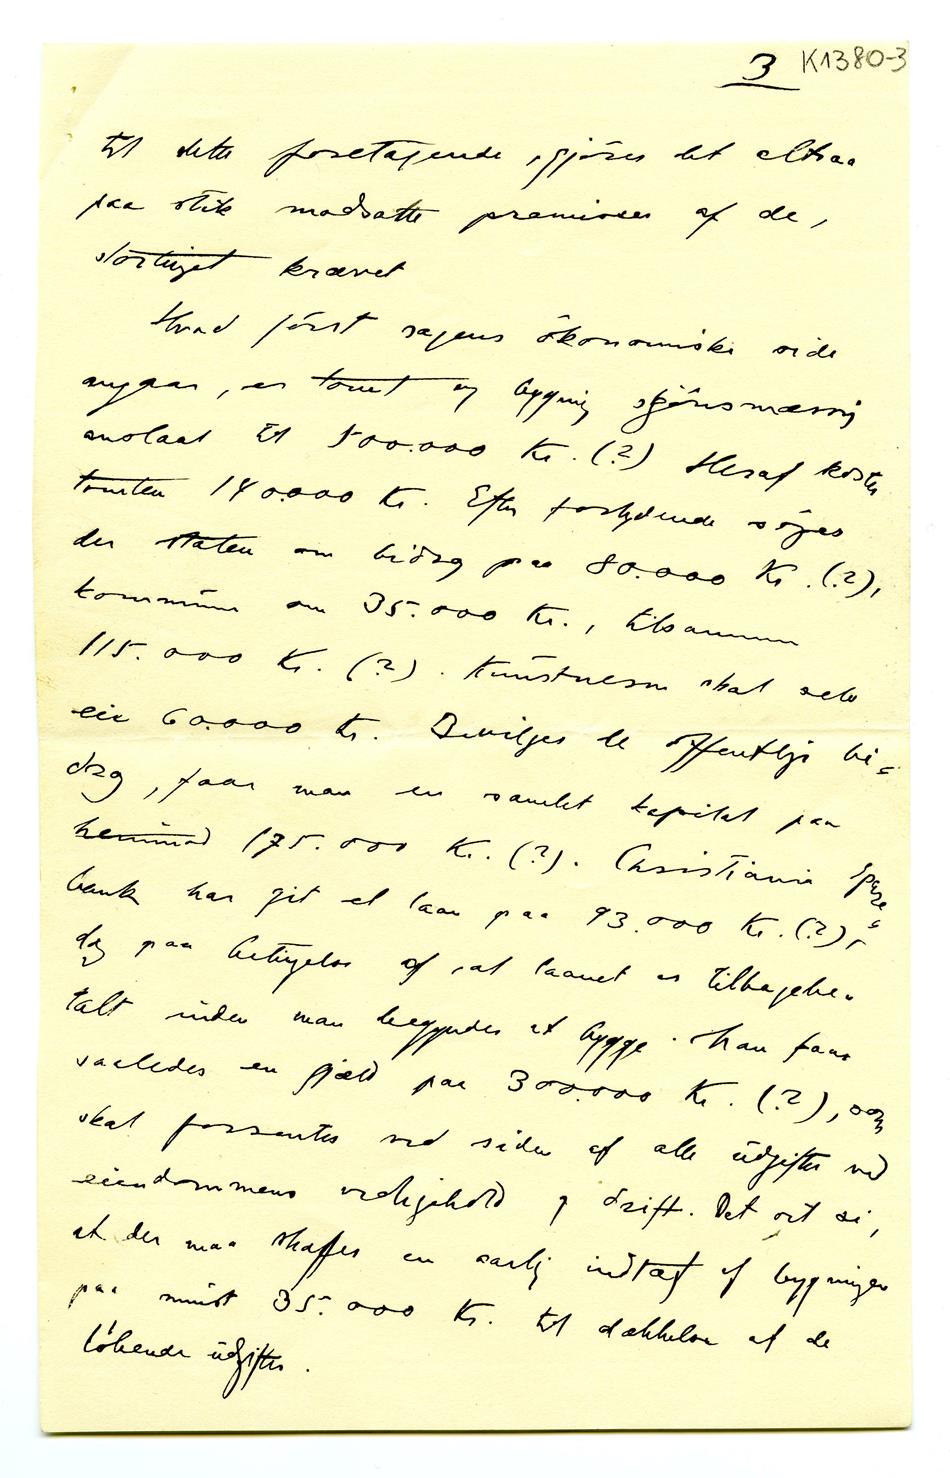 3 K1380-3
til dette foretagende, gjöres det altsaa
paa stik modsatte premisser af de,
störtinget krævet
Hvad först sagens ökonomiske side
angaar, er tomt og bygning skjönsmæssig
anslaat til 500.000 Kr. (?) Heraf koster
tomten 140.000 Kr. Efter forlydende söges
der staten om bidrag paa 80.000 Kr. (?),
kommunen om 35.000 Kr., tilsammen
115.000 Kr. (?). Kunstnerne skal selv
eie 60.000 Kr. Bevilges de offentlige bi-
drag, faar man en samlet kapital paa
henimod 175.000 Kr. (?). Christiania Spare-
bank har git et laan paa 93.000 Kr. (?),
dog paa betingelse af, at laanet er tilbagebe-
talt inden man begynder at bygge. Man faar
saaledes en gjæld paa 300.000 Kr. (?), som
skal forrentes ved siden af alle udgifter ved
eiendommens vedligehold og drift. Det vil si,
at der maa skaffes en aarlig indtægt af bygningen
paa mindst 35.000 Kr. til dækkelse af de
löbende udgifter.